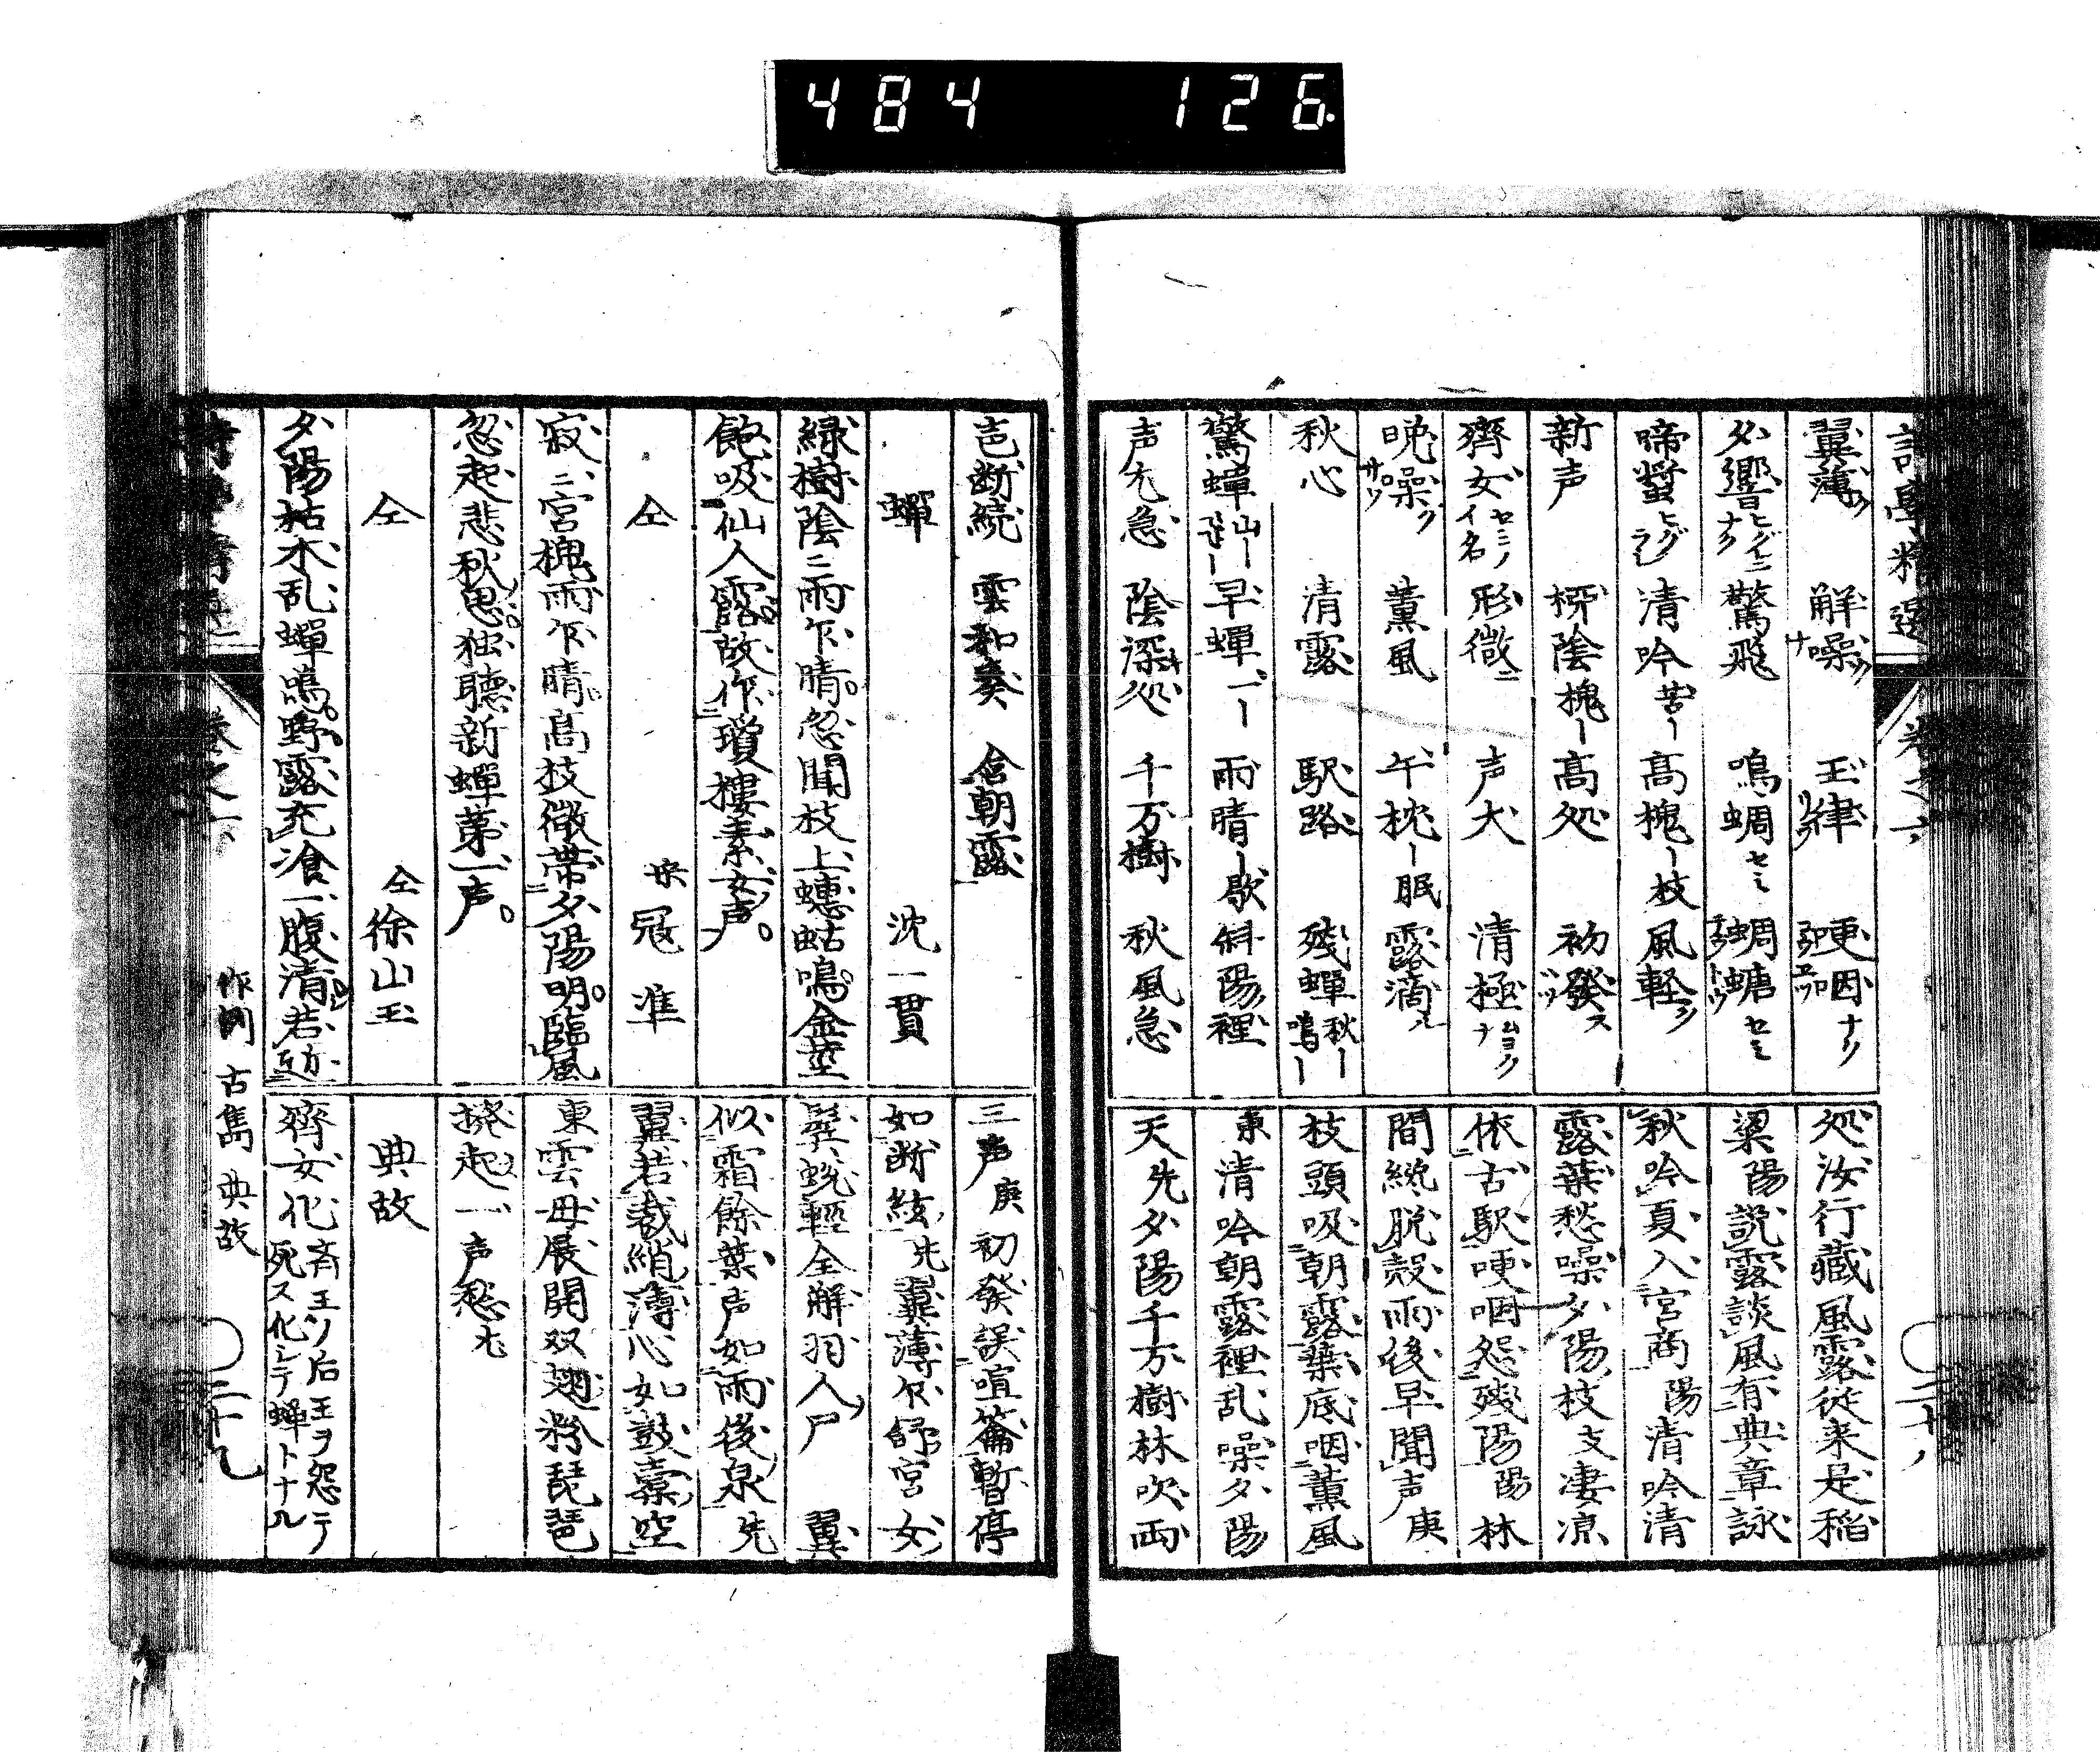 484 126.
翼薄ク 解噪ク 玉律 哽咽ナリ
夕響 驚飛 鳴蜩セミ 蜩螗セミ
啼螿 清吟苦ー 高槐ー枝 風軽ク
新声 柳陰槐ー 高処 初發ス
齊女セミノイ名 形微ニ 声大 清極
晩噪ク 薫風 午枕ー眠 露滴ル
秋心 清露 駅路 残蝉秋ー鳴ー
驚蝉山ー 早蝉 雨晴ー歇 斜陽裡
声尤急 陰深処 千万樹 秋風急
処汝行藏風露従来是稲
粱陽説露談風有典章詠
秋吟夏入宮商陽清吟清
露葉愁噪夕陽枝支凄凉
依古駅哽咽怨残陽陽林
間纔脱殻雨後早聞声庚
枝頭吸朝露葉底咽薫風
東清吟朝露裡乱噪夕陽
天先夕陽千万樹林吹両
三声庚初發誤喧箒暫停
如断絃先翼薄乍舒宮女
鬢蛻軽全解羽人尸 翼
似霜餘葉声如雨後泉先
翼若裁綃薄心如鼓橐空
東雲母展開双翅粉琵琶
撥起一声愁尤
典故
齊女化 斉王ノ后王ヲ怨テ
死ス化シテ蝉トナル
邑断続 雲和奏 含朝露
蝉 沈一貫
緑樹陰ニ雨乍晴忽聞枝上蟪蛄鳴金茎
飽吸仙人露故作瓊樓素女声
仝 宋冦準
寂ニ宮槐雨乍晴高枝微帯夕陽明臨風
忽起悲秋思独聴新蝉第一声
仝 仝徐山玉
夕陽枯木乱蝉鳴野露充飡一腹清若
作例 古雋 典故